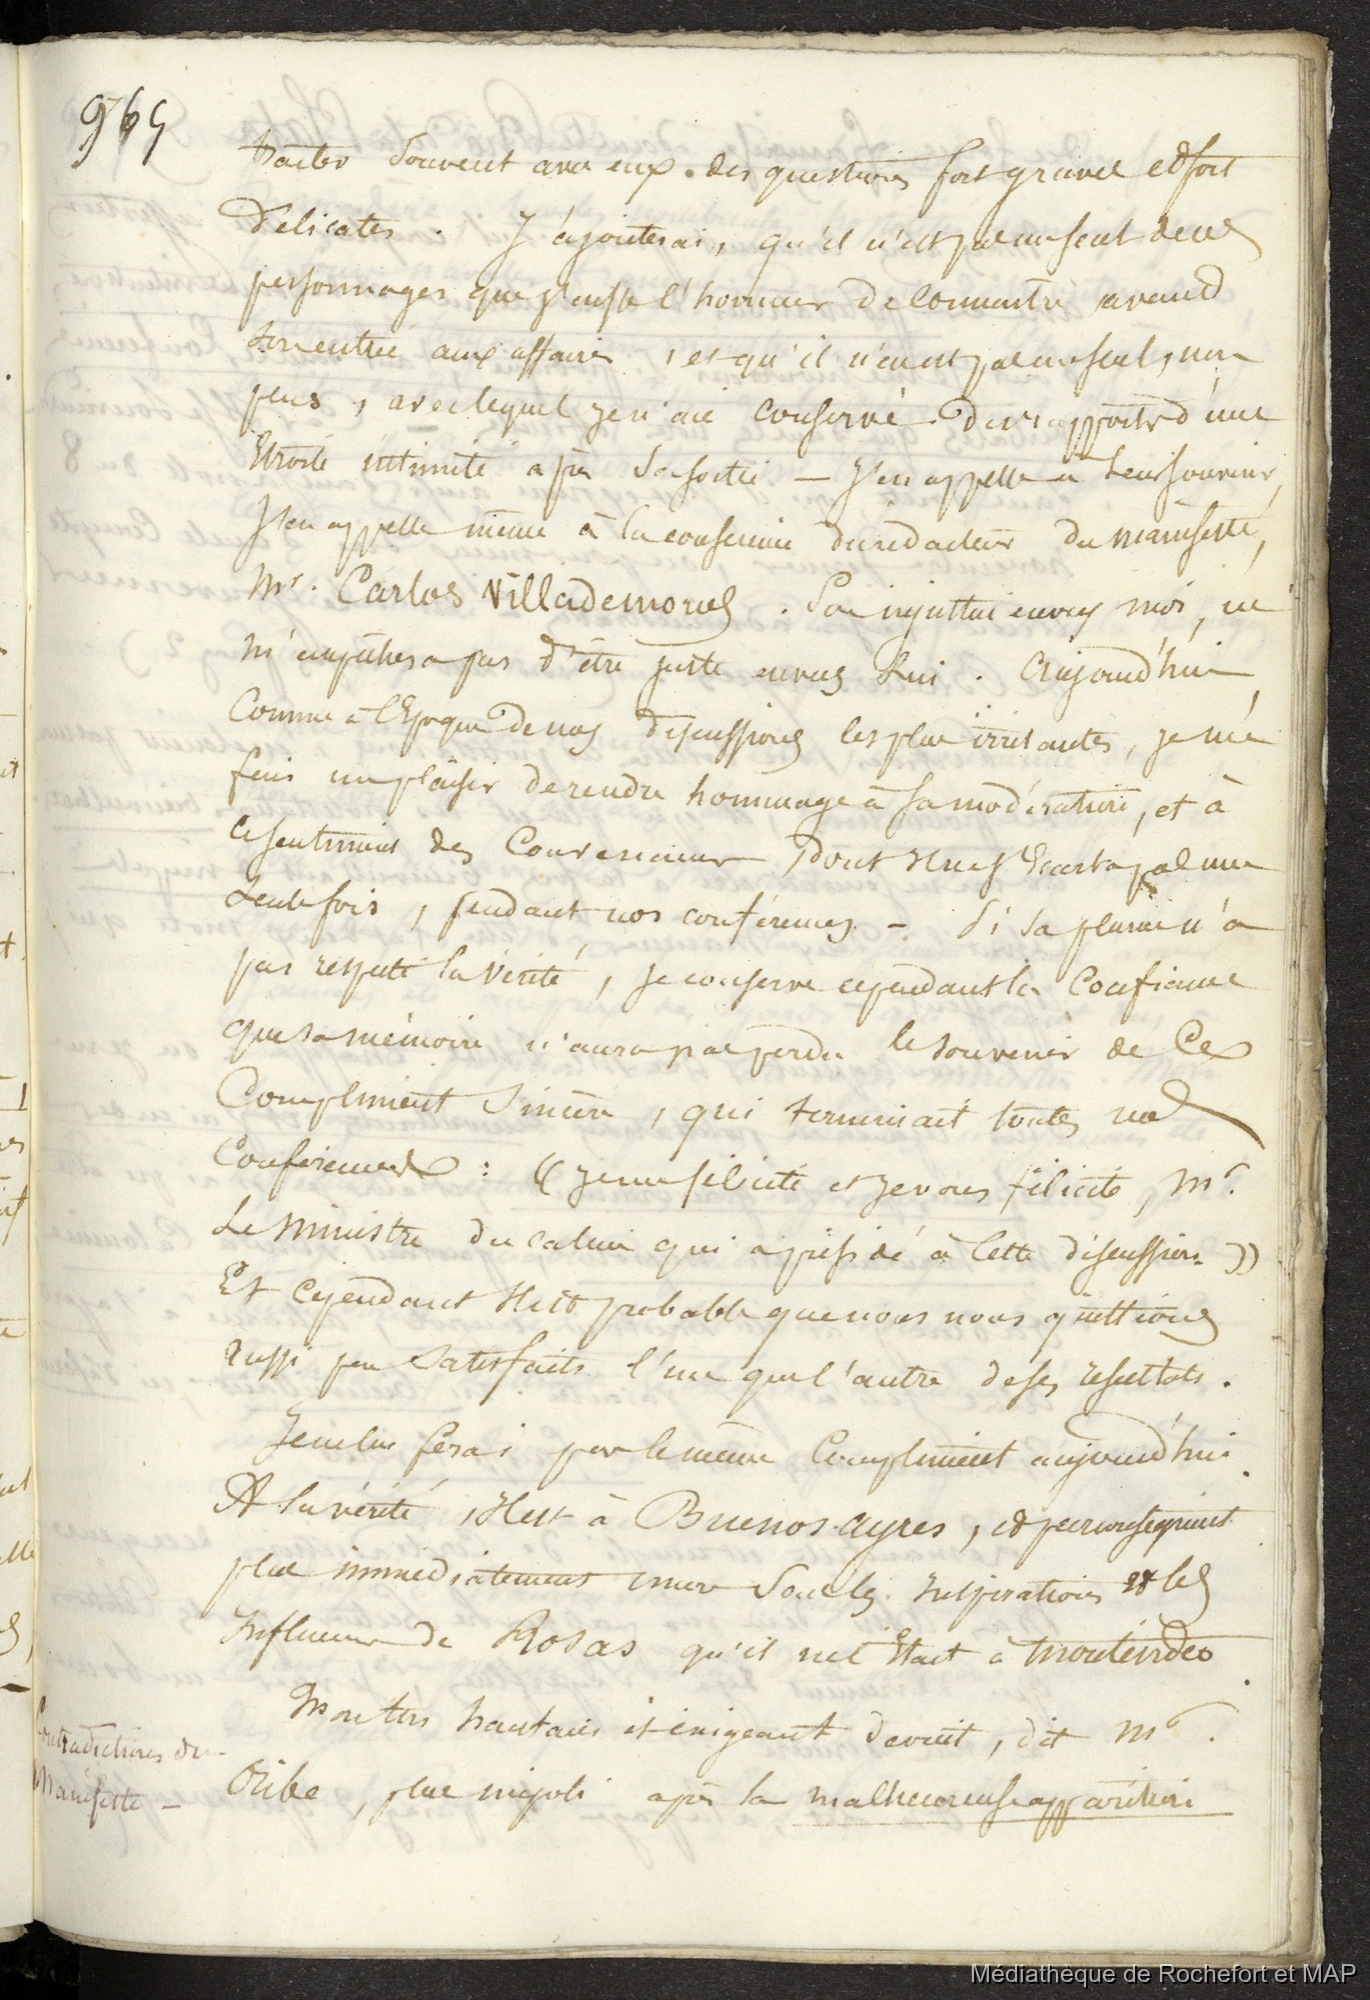 965
traiter souvent avec eux des questions fort graves et fort
délicates. J'ajouterai, qu'il n'est pas un seul de ces
personnages que j'eusse l'honneur de connaitre avant
son entrée aux affaires, et qu'il n'en est pas un seul, non
plus, avec lequel je n'aie conservé des rapports d'une
Etroite intimité après sa sortie — J'en appelle à leur souvenir,
J'en appelle même à la conscience du rédacteur du manifeste,
Mr. Carlos Villademoros. Son injustice envers moi, ne
m'empêchera pas d'être juste envers lui. Aujourd'hui,
Comme à l'Epoque de nos discussions les plus irritantes, je me
fais un plaisir de rendre hommage à sa modération, et à
ce sentiment des Convenances dont il ne s'Ecarta pas une
seule fois, pendant nos conférences — Si sa plume n'a
pas respecté la vérité, je conserve cependant la Confiance
que sa mémoire n'aura pas perdu le souvenir de Ce
Compliment Sincère, qui terminait toutes nos
Conférences : « je me félicite et je vous félicite, Mr.
Le Ministre du calme qui a présidé à Cette discussion »
Et Cependant il est probable que nous nous quittions
aussi peu satisfaits l'un que l'autre de ses résultats.
Je ne lui ferai pas le même Compliment aujourd'hui.
A la vérité, il est à Buenos-ayres, et par conséquent
plus immédiatement encore sous les Inspirations et les
Influences de Rosas qu'il ne l'Etait à Montévidéo.
Mon ton hautain et exigeant devint, dit Mr.
Oribe, plus impoli après la malheureuse apparition
Contradictions du
Manifeste —
Médiathèque de Rochefort et MAP